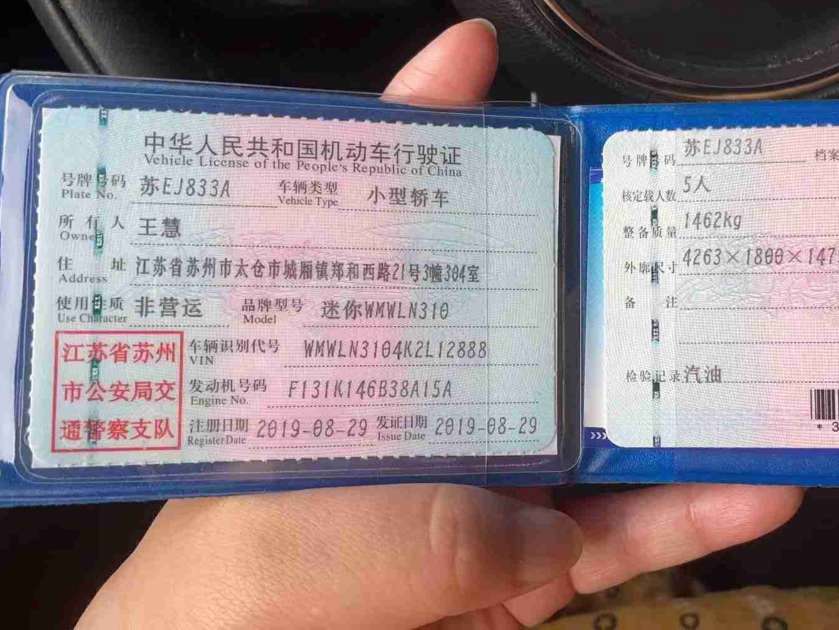 中华人民共和国机动车行驶证
Vehicle License of the People's Republic of China
号牌号码 苏EJ833A 车辆类型 小型轿车
Plate No. Vehicle Type
所有人 王慧
Owner
住址 江苏省苏州市太仓市城厢镇郑和西路21号3幢304室
Address
使用性质 非营运 品牌型号 迷你WMWLN310
Use Character Model
江苏省苏州
市公安局交
通警察支队
车辆识别代号 WMWLN3104K2L12888
VIN
发动机号码 F131K146B38A15A
Engine No.
注册日期 2019-08-29 发证日期 2019-08-29
Register Date Issue Date
号牌号码 苏EJ833A 档案
核定载人数 5人
整备质量 1462kg
外廓尺寸 4263×1800×147
备注
检验记录 汽油
*3